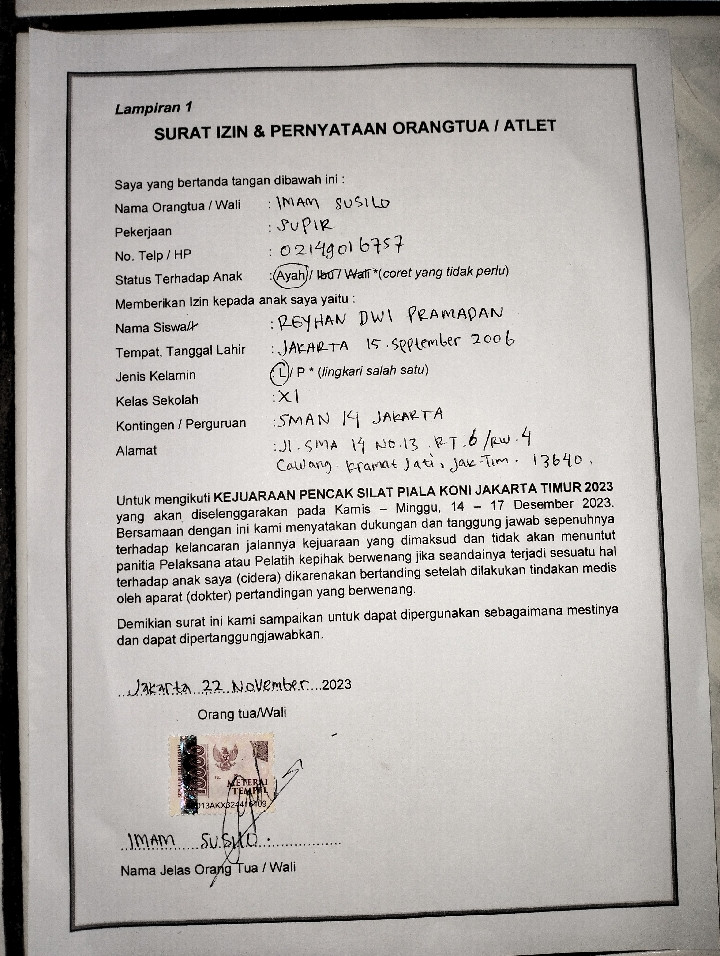 Lampiran 1
SURAT IZIN & PERNYATAAN ORANGTUA / ATLET
Saya yang bertanda tangan dibawah ini :
Nama Orangtua / Wali : IMAM SUSILO
Pekerjaan : SUPIR
No. Telp / HP : 02149016757
Status Terhadap Anak : Ayah / Ibu / Wali *(coret yang tidak perlu)
Memberikan Izin kepada anak saya yaitu :
Nama Siswa/i : REYHAN DWI PRAMADAN
Tempat, Tanggal Lahir : JAKARTA 15 . September 2006
Jenis Kelamin : L / P * (lingkari salah satu)
Kelas Sekolah : XI
Kontingen / Perguruan : SMAN 14 JAKARTA
Alamat : Jl. SMA 14 NO.13 . RT. 6 /RW. 4
Cawang . Kramat Jati, Jak-Tim . 13640 .
Untuk mengikuti KEJUARAAN PENCAK SILAT PIALA KONI JAKARTA TIMUR 2023
yang akan diselenggarakan pada Kamis – Minggu, 14 – 17 Desember 2023.
Bersamaan dengan ini kami menyatakan dukungan dan tanggung jawab sepenuhnya
terhadap kelancaran jalannya kejuaraan yang dimaksud dan tidak akan menuntut
panitia Pelaksana atau Pelatih kepihak berwenang jika seandainya terjadi sesuatu hal
terhadap anak saya (cidera) dikarenakan bertanding setelah dilakukan tindakan medis
oleh aparat (dokter) pertandingan yang berwenang.
Demikian surat ini kami sampaikan untuk dapat dipergunakan sebagaimana mestinya
dan dapat dipertanggungjawabkan.
Jakarta 22 November 2023
Orang tua/Wali
10000
METERAI
TEMPEL
IMAM SUSILO .
Nama Jelas Orang Tua / Wali